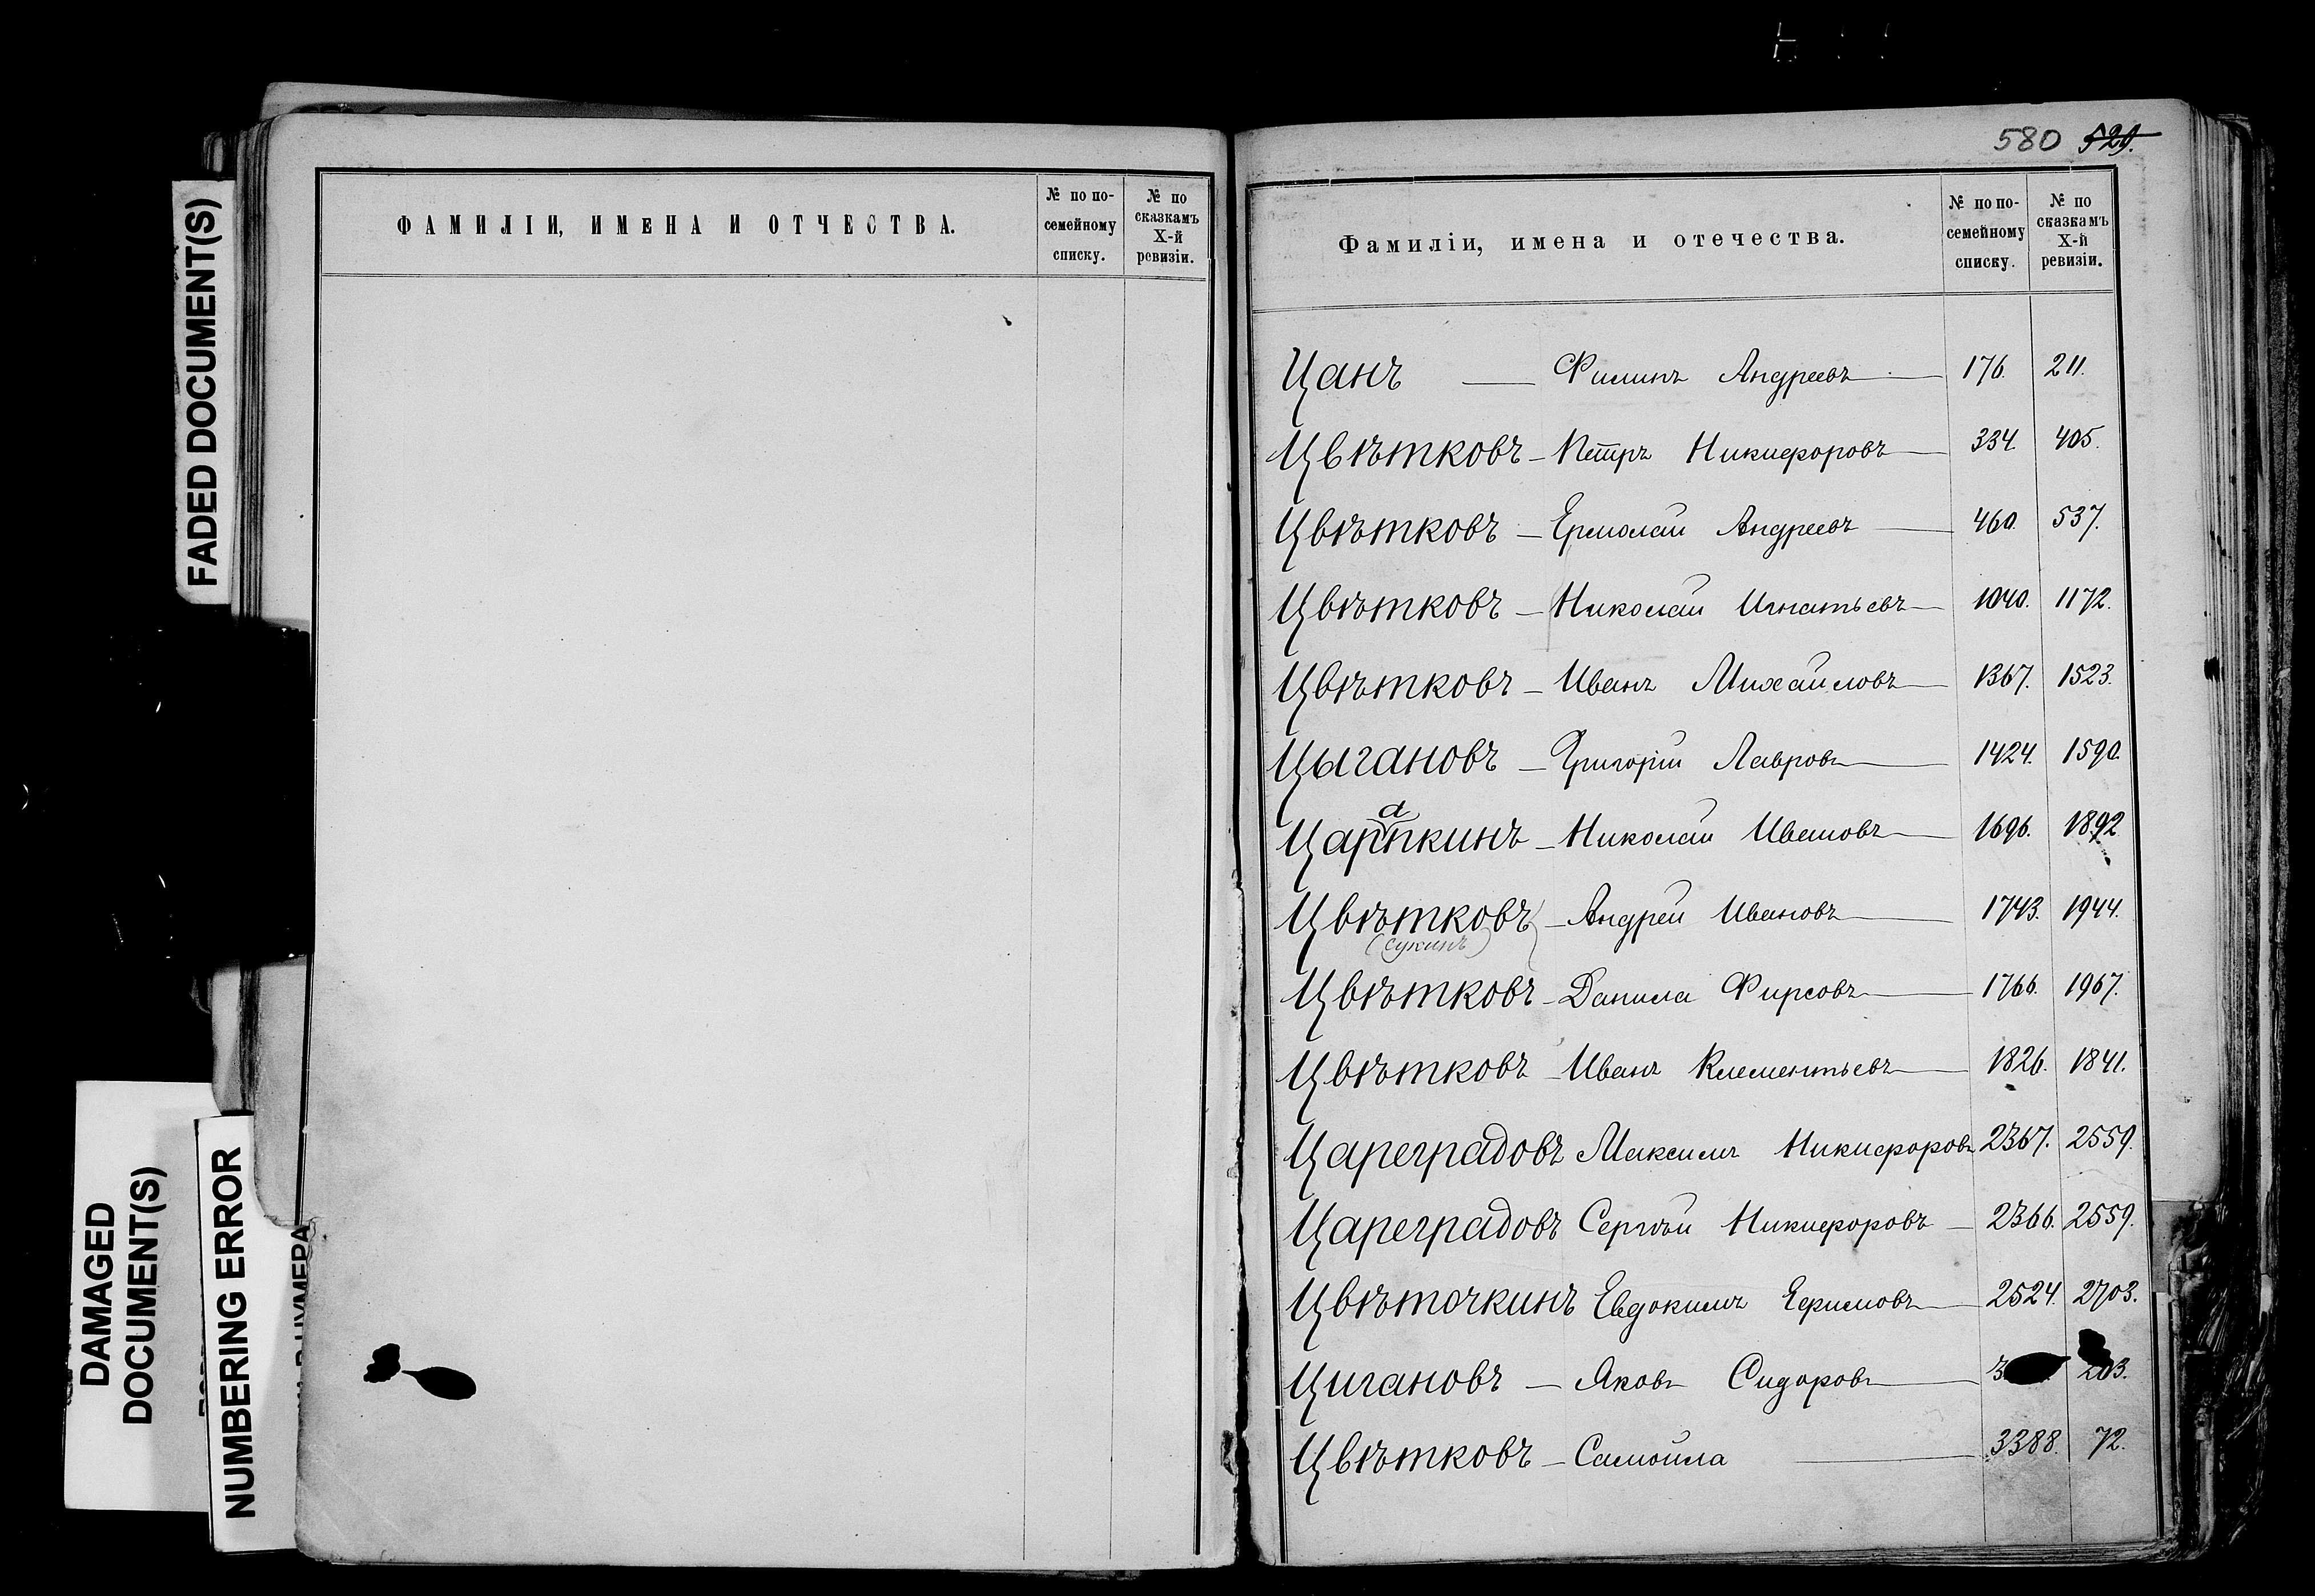 FADED DOCUMENT(S)
DAMAGED
DOCUMENT(S)
NUMBERING ERROR
ФАМИЛІИ, ИМЕНА И ОТЧЕСТВА.
№ по по-
семейному
списку.
№ по
сказкамъ
X-й
ревизіи.
580 529.
Фамиліи, имена и отечества.
№ по по-
семейному
списку.
№ по
сказкамъ
X-й
ревизіи.
Цанъ — Филипъ Андреевъ — 176. 211.
Цвѣтковъ — Петръ Никифоровъ — 334. 405.
Цвѣтковъ — Ермолай Андреевъ — 460. 537.
Цвѣтковъ — Николай Игнатьевъ — 1040. 1172.
Цвѣтковъ — Иванъ Михайловъ — 1367. 1523.
Цыгановъ — Григорій Лавровъ — 1424. 1590.
Царапкинъ — Николай Ивановъ — 1696. 1892.
Цвѣтковъ — Андрей Ивановъ — 1743. 1944.
(Сукинъ)
Цвѣтковъ — Данила Фирсовъ — 1766. 1967.
Цвѣтковъ — Иванъ Клементьевъ — 1826. 1841.
Цареградовъ Максимъ Никифоровъ 2367. 2559.
Цареградовъ Сергѣй Никифоровъ — 2366. 2559.
Цвѣточкинъ Евдокимъ Ефимовъ — 2524. 2703.
Цигановъ — Яковъ Сидоровъ — 203.
Цвѣтковъ — Самойла — 3388. 72.